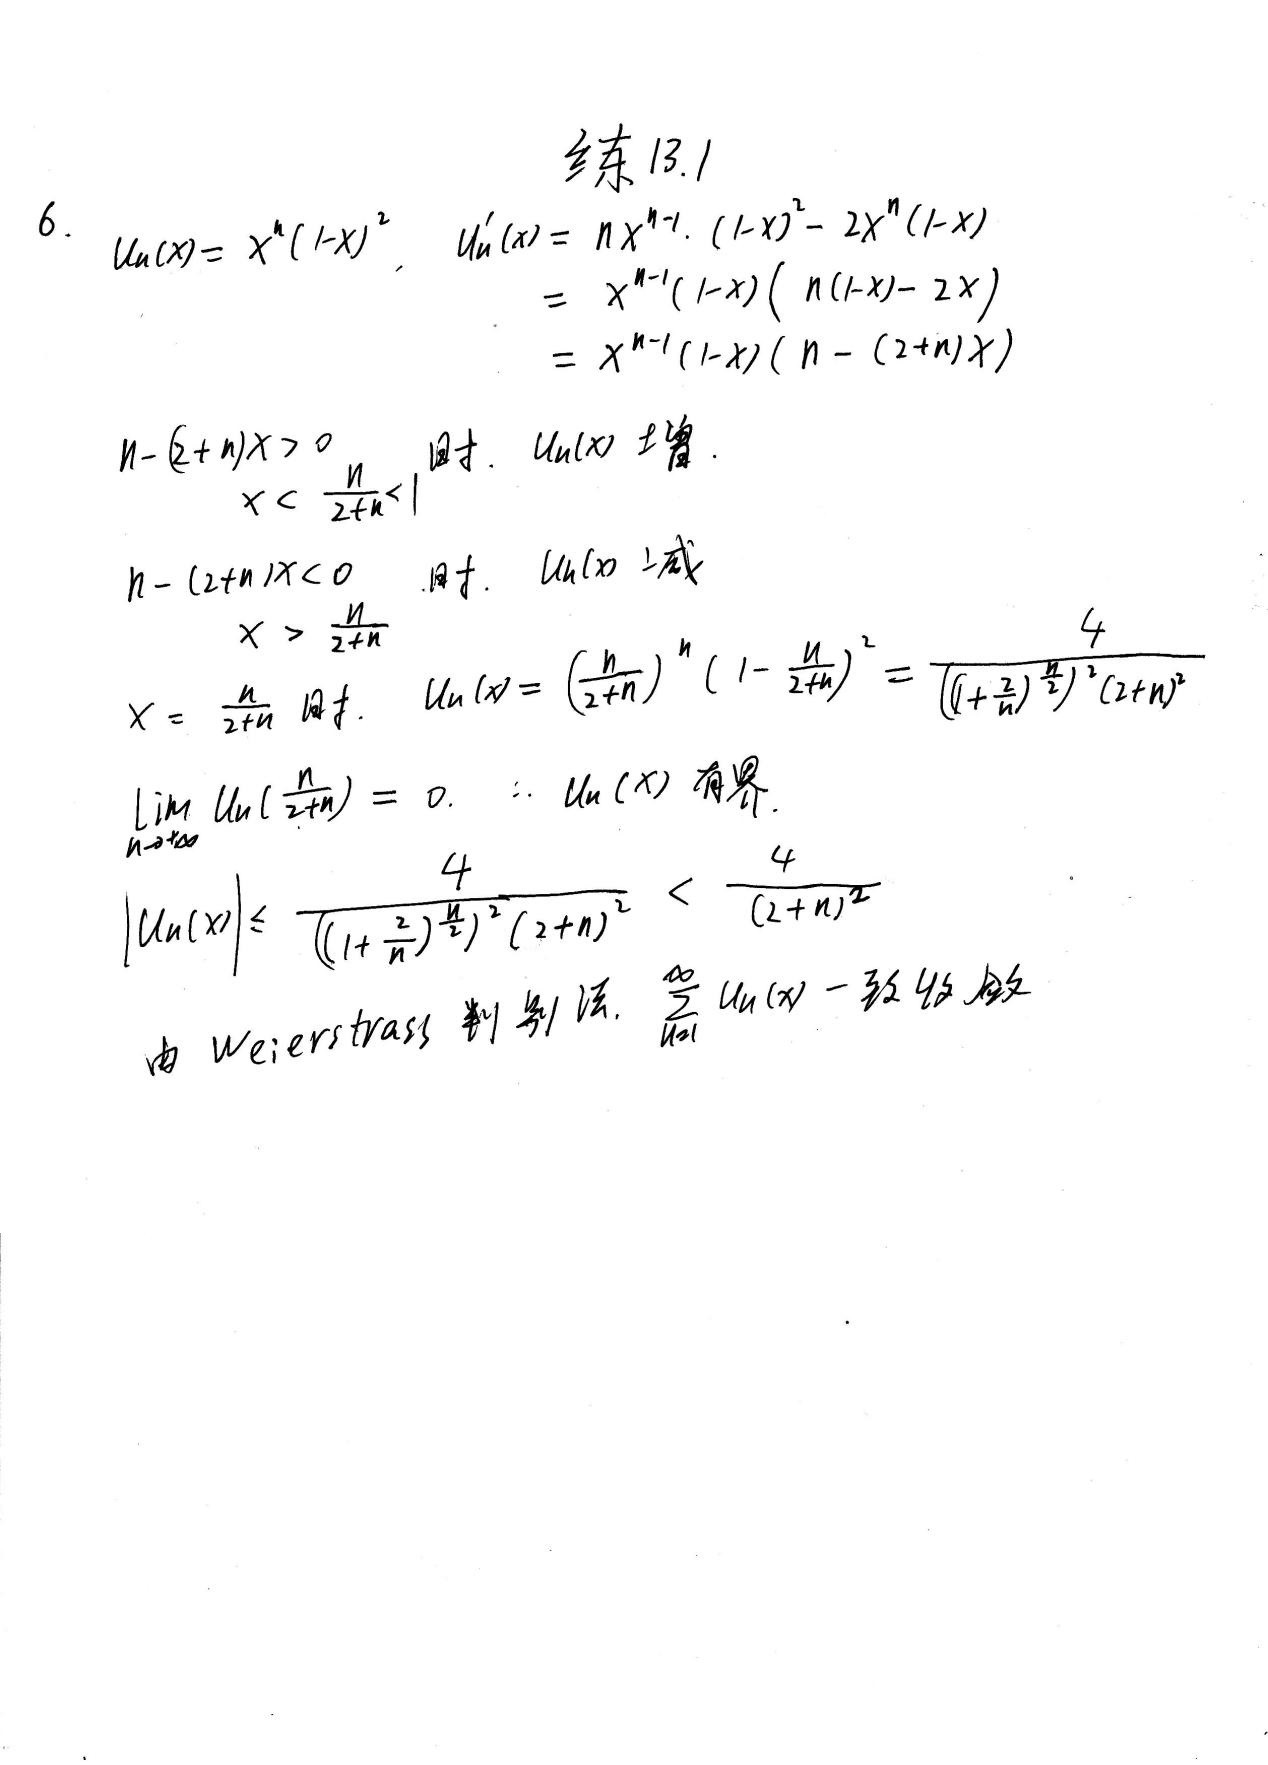 练13.1
6. Un(x) = xⁿ(1-x)², Un'(x) = nxⁿ⁻¹·(1-x)² - 2xⁿ(1-x)
= xⁿ⁻¹(1-x)(n(1-x) - 2x)
= xⁿ⁻¹(1-x)(n - (2+n)x)
n-(2+n)x > 0 时. Un(x)增.
x < n/(2+n) < 1
n-(2+n)x < 0 时. Un(x)减
x > n/(2+n)
x = n/(2+n) 时. Un(x) = (n/(2+n))ⁿ (1 - n/(2+n))² = 4/(((1+2/n)^(n/2))²(2+n)²)
lim n→+∞ Un(n/(2+n)) = 0. ∴ Un(x) 有界.
|Un(x)| ≤ 4/(((1+2/n)^(n/2))²(2+n)²) < 4/(2+n)²
由 Weierstrass 判别法. ∑_{n=1}^{∞} Un(x) 一致收敛